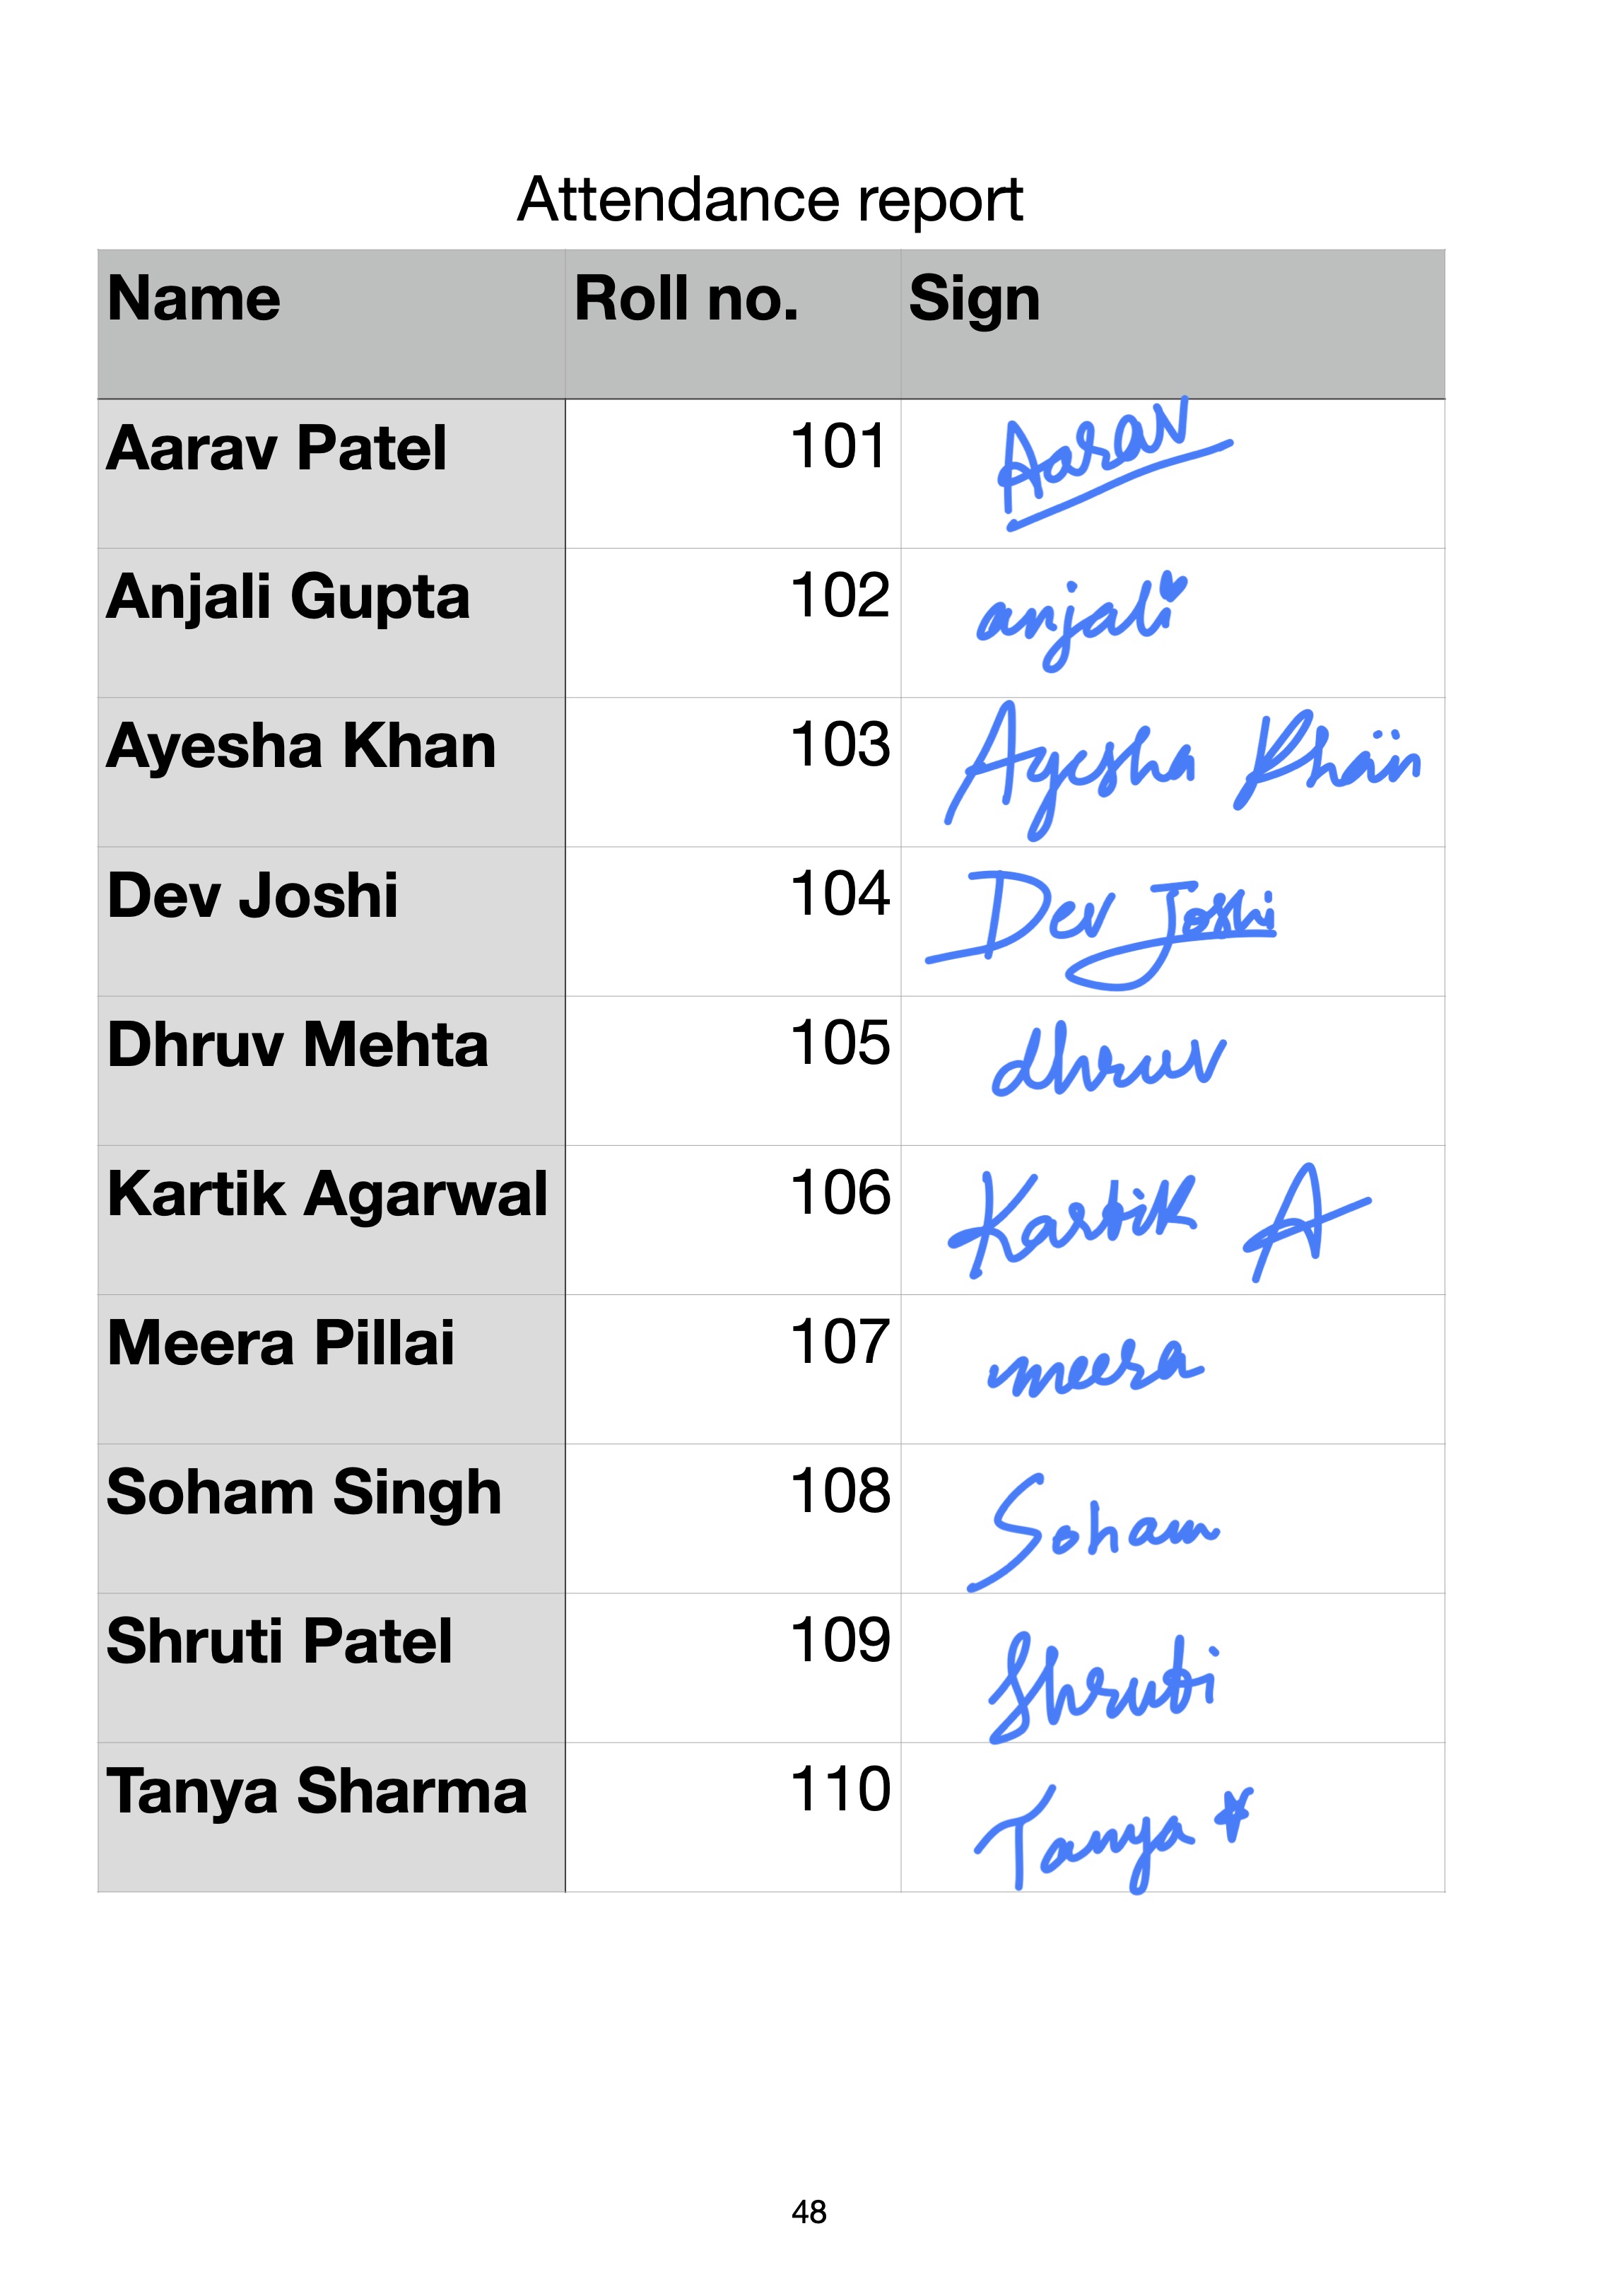 Attendance report
Name Roll no. Sign
Aarav Patel 101 Aarav
Anjali Gupta 102 anjali
Ayesha Khan 103 Ayesha Khan
Dev Joshi 104 Dev Joshi
Dhruv Mehta 105 dhruv
Kartik Agarwal 106 Kartik A
Meera Pillai 107 meera
Soham Singh 108 Soham
Shruti Patel 109 Shruti
Tanya Sharma 110 Tanya *
48